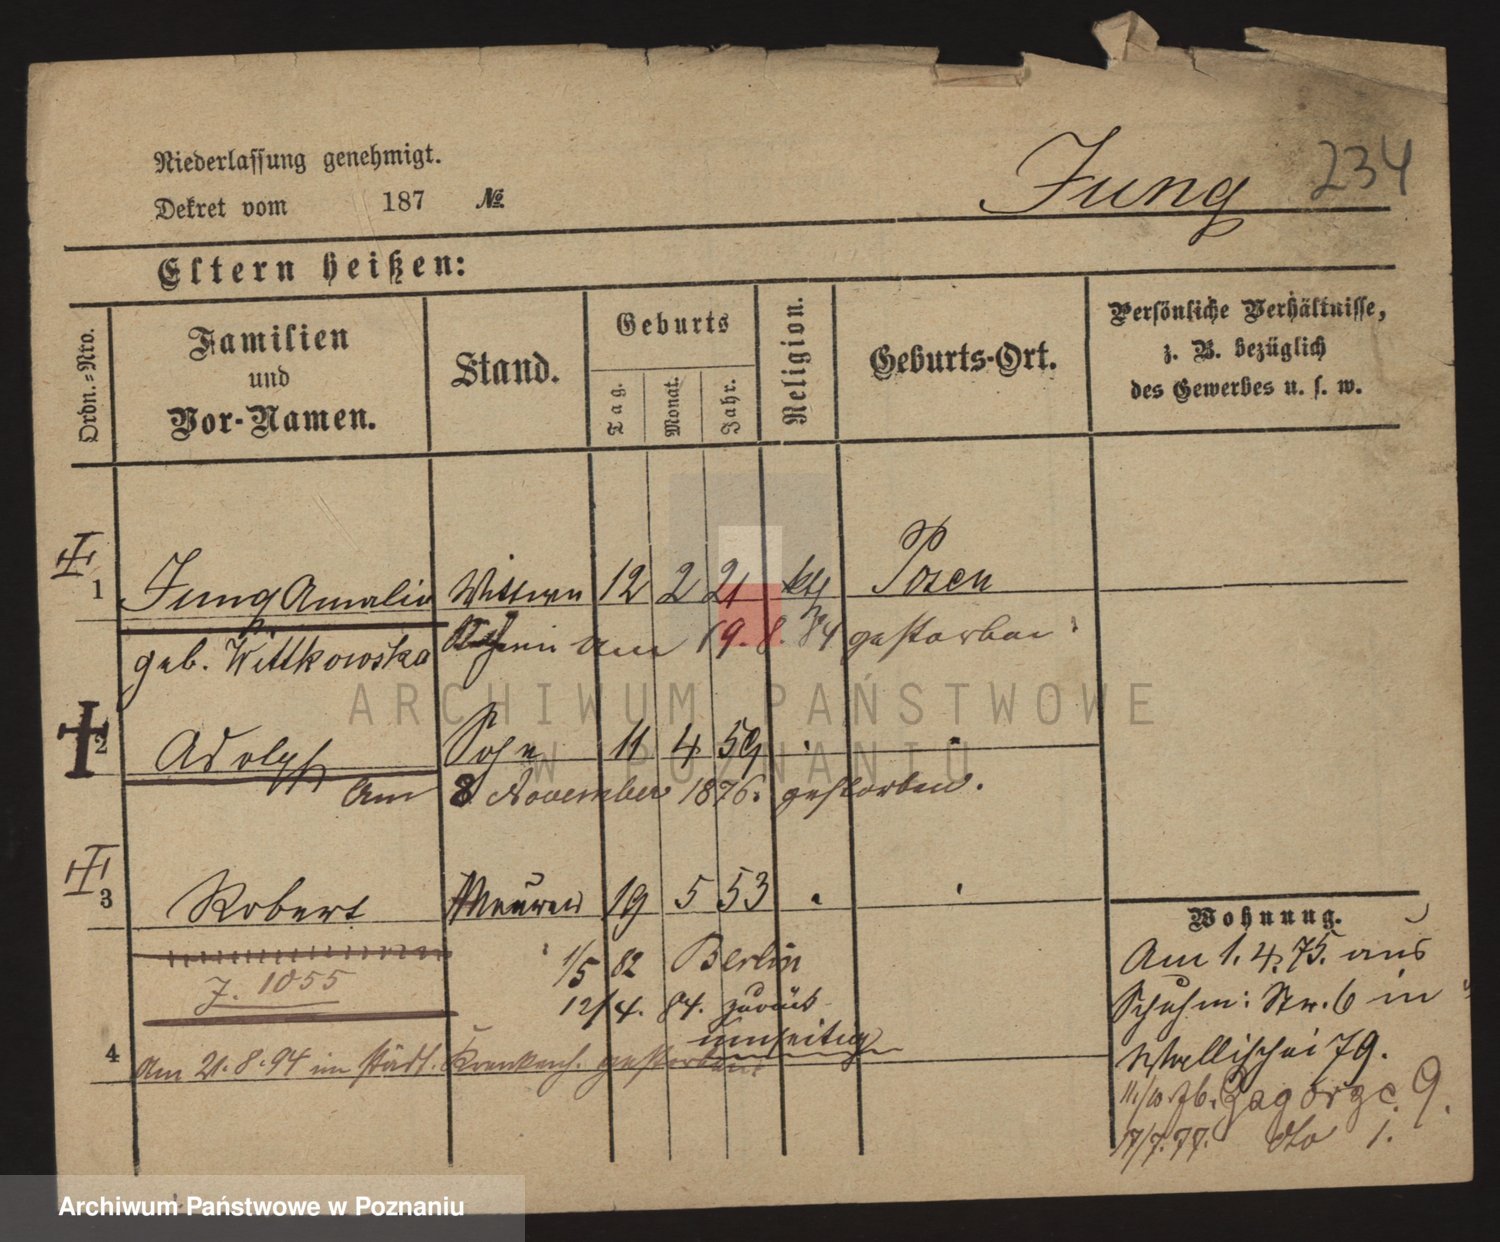 234
Niederlassung genehmigt.
Dekret vom 187 №
Jung
Eltern heißen:
Ordn.-Nro.
Familien
und
Vor-Namen.
Stand.
Geburts
Tag.
Monat.
Jahr.
Religion.
Geburts-Ort.
Persönliche Verhältnisse,
z. B. bezüglich
des Gewerbes u. s. w.
1 Jung Amalie Wittwe 12 2 21 kth Posen
geb. Wittkowska am 19. 8. 84 gestorben
2 Adolph Sohn 11 4 59
Am 8 November 1876. gestorben.
3 Robert Maurer 19 5 53
1/5 82 Berlin
J. 1055
12/4. 84. zurück
umseitig
4 Am 21.8.94 im städt. Krankenh. gestorben
Wohnung.
Am 1. 4. 75. aus
Schuhm: Str. 6 in
Wallischei 79.
11/10 76. Zagorze. 9.
17/7. 77. dto 1.
ARCHIWUM PAŃSTWOWE
W POZNANIU
Archiwum Państwowe w Poznaniu